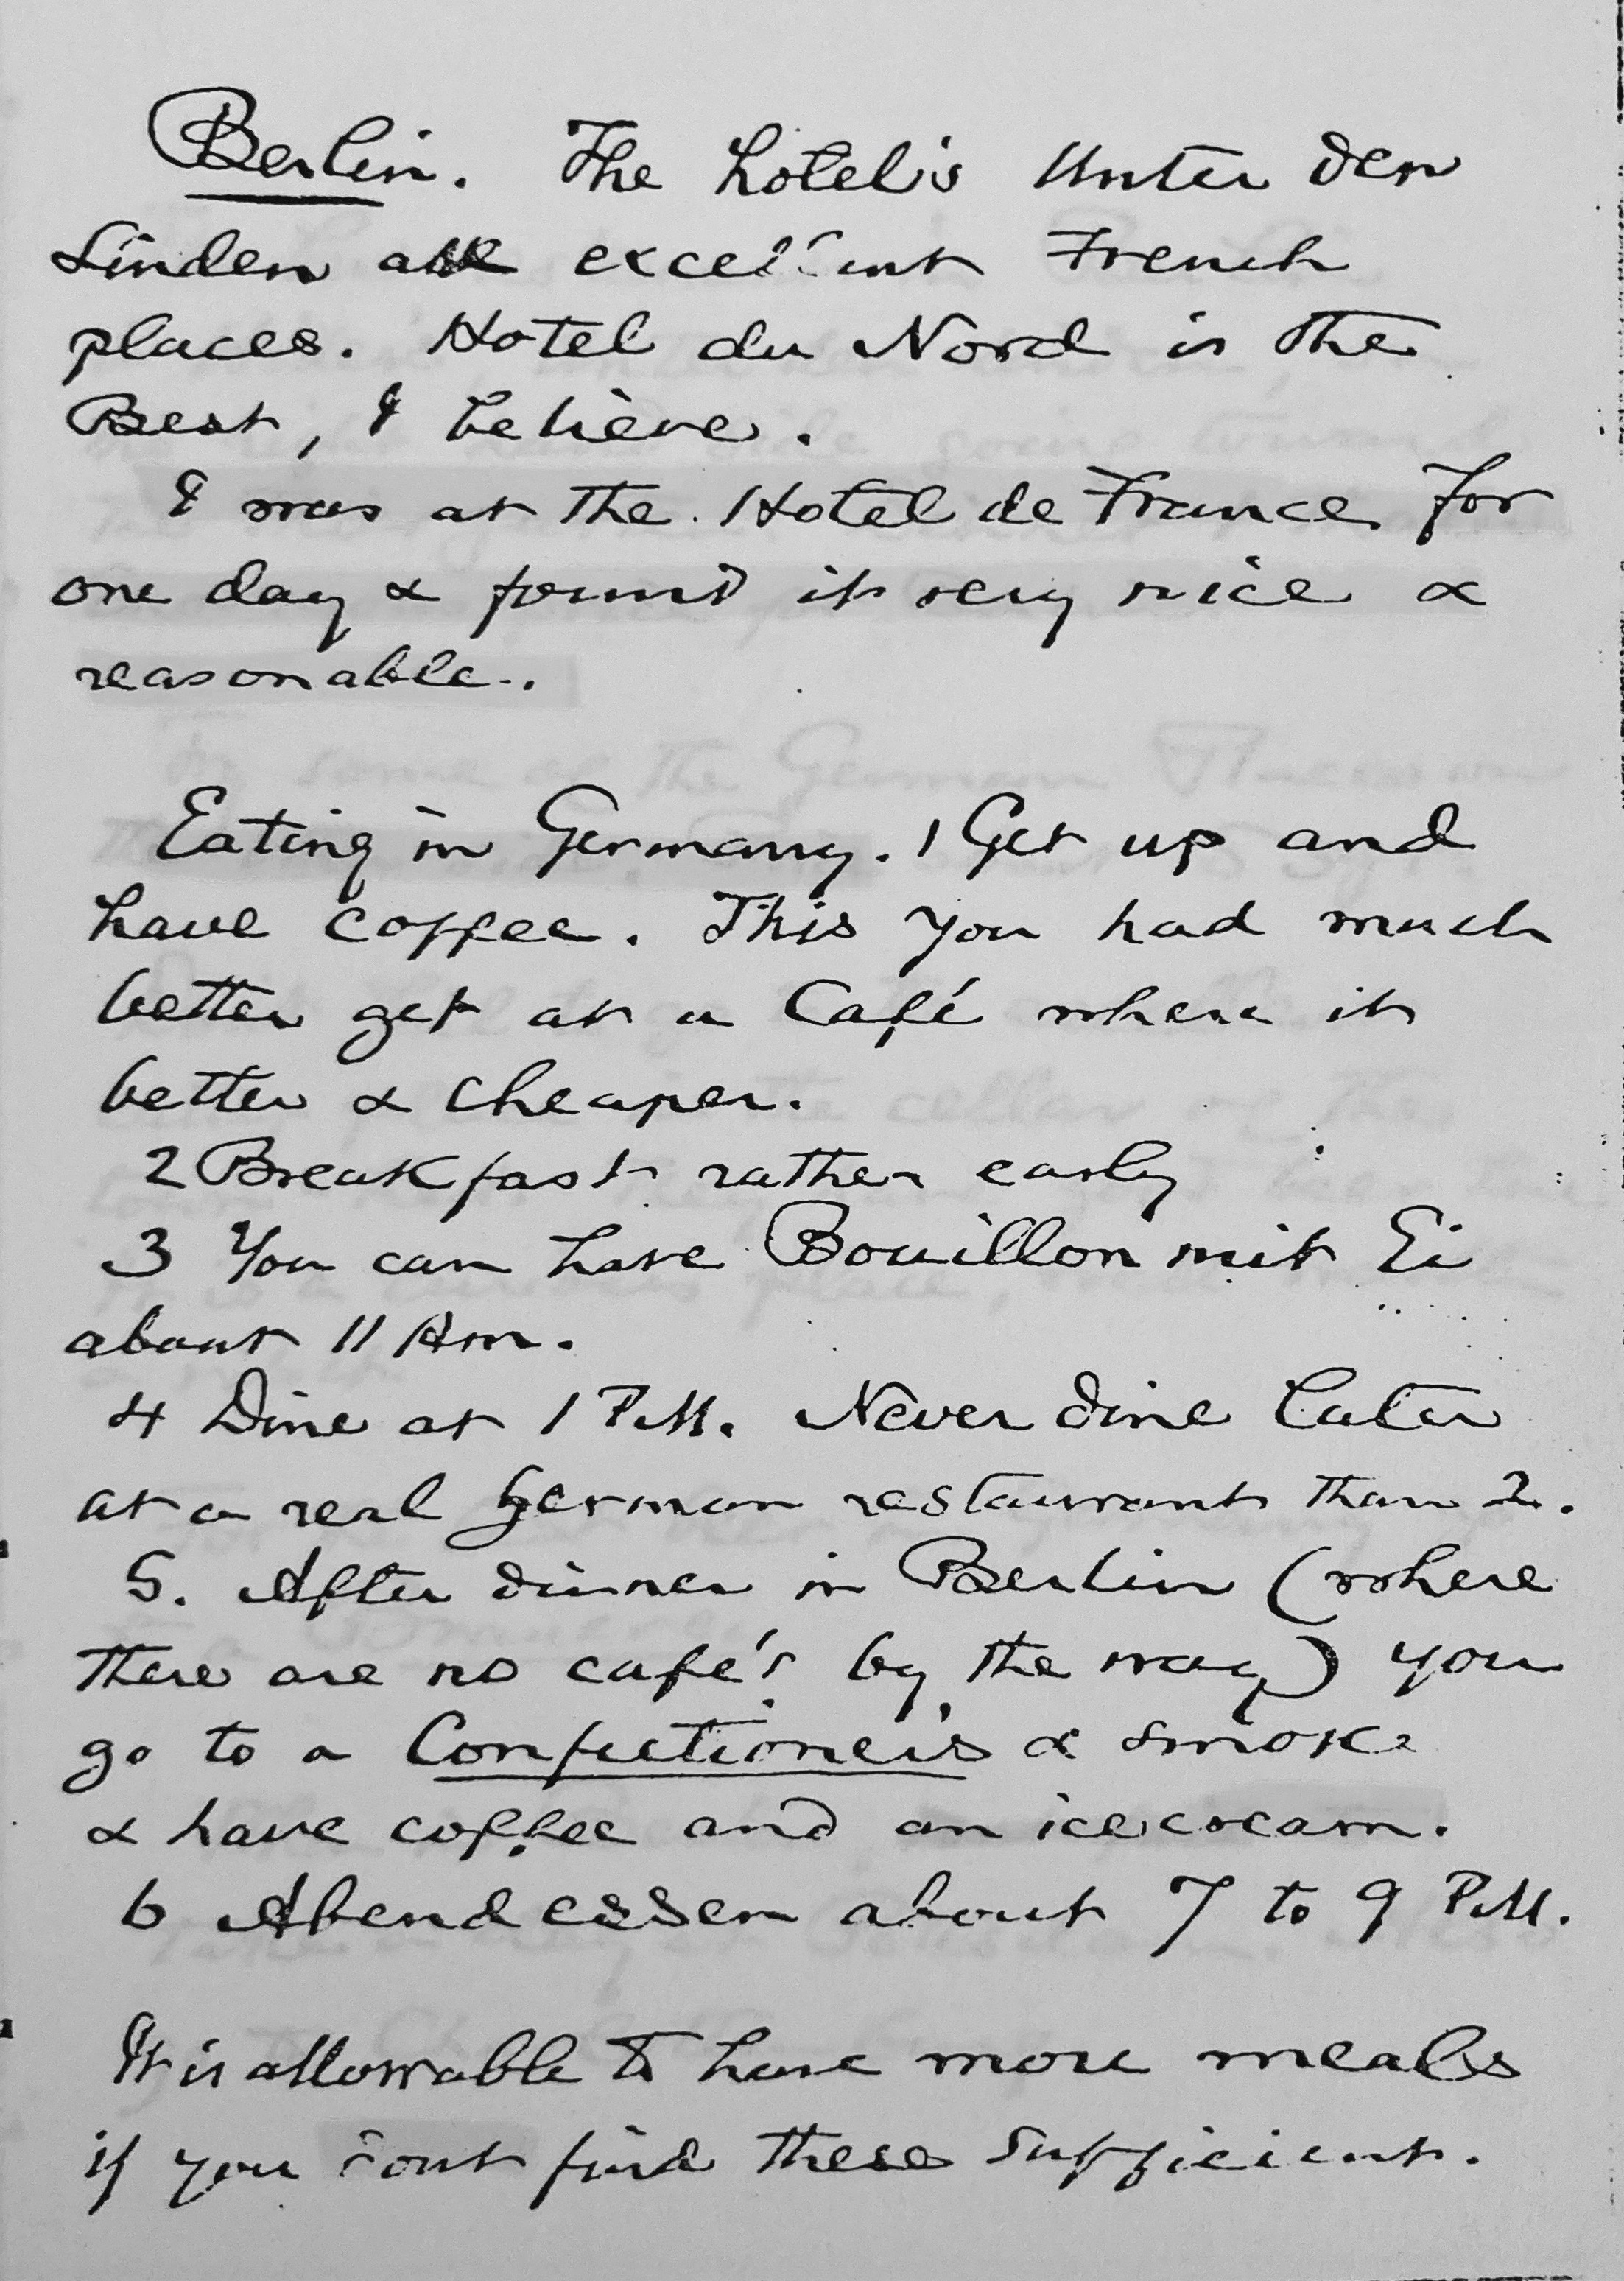 Berlin. The hotel's Unter den
Linden are excellent French
places. Hotel du Nord is the
Best, I believe.
I was at the Hotel de France for
one day & found it very nice &
reasonable.
Eating in Germany. 1 Get up and
have coffee. This you had much
better get at a Café where it
better & cheaper.
2 Breakfast rather early
3 You can have Bouillon mit Ei
about 11 Am.
4 Dine at 1 P.M. Never dine later
at a real German restaurant than 2.
5. After dinner in Berlin (where
there are no café's by the way) you
go to a Confectioner's & smoke
& have coffee and an icecream.
6 Abendessen about 7 to 9 P.M.
It is allowable to have more meals
if you dont find these sufficient.